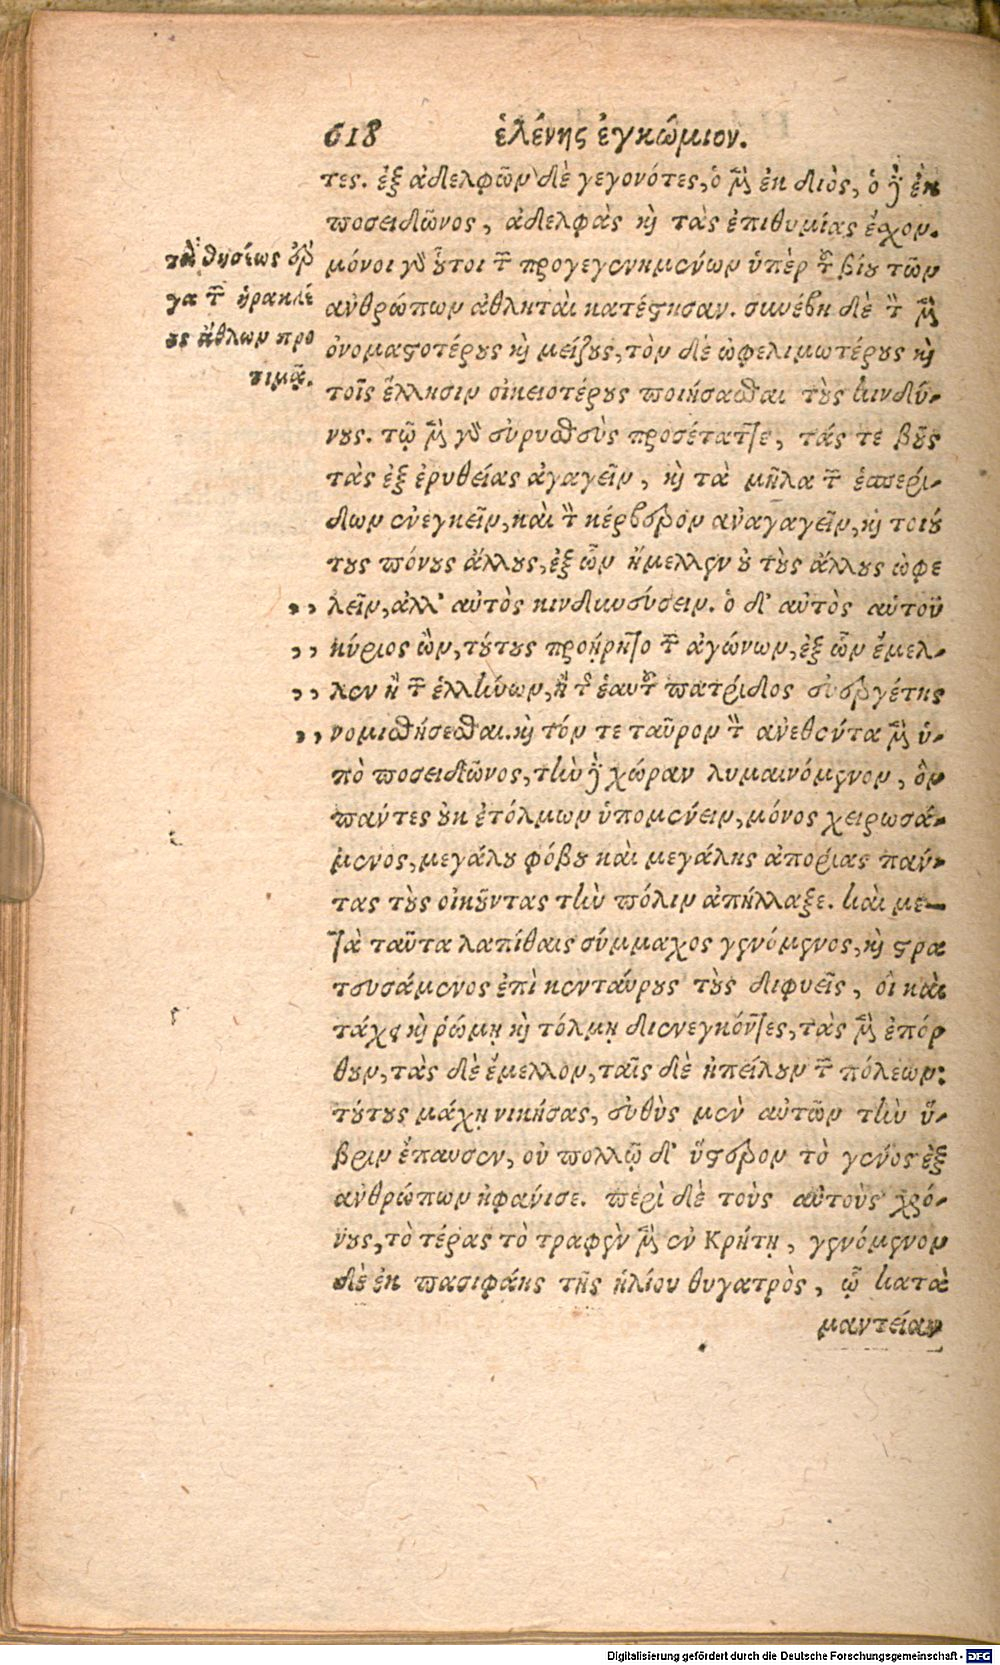 618 ἑλένης ἐγκώμιον.
τες. ἐξ ἀδελφῶν δὲ γεγονότες, ὁ μὲν ἐκ διὸς, ὁ δὲ ἐκ
ποσειδῶνος, ἀδελφὰς καὶ τὰς ἐπιθυμίας ἔσχον.
μόνοι γὰρ οὗτοι τῶν προγεγενημένων ὑπὲρ τοῦ βίου τῶν
ἀνθρώπων ἀθληταὶ κατέστησαν. συνέβη δὲ τὸν μὲν
ὀνομαστοτέρους καὶ μείζους, τὸν δὲ ὠφελιμωτέρους καὶ
τοῖς ἕλλησιν οἰκειοτέρους ποιήσασθαι τοὺς κινδύ-
νους. τῷ μὲν γὰρ εὐρυσθεὺς προσέταττε, τάς τε βοῦς
τὰς ἐξ ἐρυθείας ἀγαγεῖν, καὶ τὰ μῆλα τῶν ἑσπερί-
δων ἐνεγκεῖν, καὶ τὸν κέρβερον ἀναγαγεῖν, καὶ τοιού
τους πόνους ἄλλους, ἐξ ὧν ἤμελλεν οὐ τοὺς ἄλλους ὠφε
λεῖν, ἀλλ' αὐτὸς κινδυνεύσειν. ὁ δ' αὐτὸς αὑτοῦ
κύριος ὢν, τούτους προῃρεῖτο τῶν ἀγώνων, ἐξ ὧν ἔμελ-
λεν ἢ τῶν ἑλλήνων, ἢ τῆς ἑαυτοῦ πατρίδος εὐεργέτης
νομισθήσεσθαι. καὶ τόν τε ταῦρον τὸν ἀνεθέντα μὲν ὑ-
πὸ ποσειδῶνος, τὴν δὲ χώραν λυμαινόμενον, ὃν
πάντες οὐκ ἐτόλμων ὑπομένειν, μόνος χειρωσά-
μενος, μεγάλου φόβου καὶ μεγάλης ἀπορίας πάν-
τας τοὺς οἰκοῦντας τὴν πόλιν ἀπήλλαξε. καὶ με-
τὰ ταῦτα λαπίθαις σύμμαχος γενόμενος, καὶ στρα
τευσάμενος ἐπὶ κενταύρους τοὺς διφυεῖς, οἳ καὶ
τάχει καὶ ῥώμῃ καὶ τόλμῃ διενεγκόντες, τὰς μὲν ἐπόρ
θουν, τὰς δὲ ἔμελλον, ταῖς δὲ ἠπείλουν τῶν πόλεων:
τούτους μάχῃ νικήσας, εὐθὺς μὲν αὐτῶν τὴν ὕ-
βριν ἔπαυσεν, οὐ πολλῷ δ' ὕστερον τὸ γένος ἐξ
ἀνθρώπων ἠφάνισε. περὶ δὲ τοὺς αὐτοὺς χρό-
νους, τὸ τέρας τὸ τραφὲν μὲν ἐν Κρήτῃ, γενόμενον
δὲ ἐκ πασιφάης τῆς ἡλίου θυγατρὸς, ᾧ κατὰ
μαντείαν
τὰ θησέως ἔρ
γα τῶν ἡρακλέ
ους ἄθλων προ
τιμᾷ.
Digitalisierung gefördert durch die Deutsche Forschungsgemeinschaft - DFG